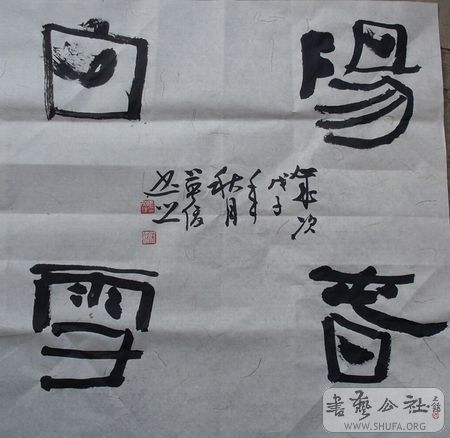 陽春
白雪
歲次
戊子
年
秋月
書藝公社
WWW.SHUFA.ORG